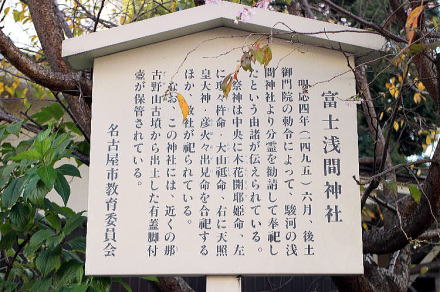 富士浅間神社
明応四年（一四九五）六月、後土
御門院の勅令によって、駿河の浅
間神社より分霊を勧請して奉祀し
たという由緒が伝えられている。
祭神は中央に木花開耶姫命、左
に瓊々杵命・大山祗命、右に天照
皇大神・彦火々出見命を合祀する
ほか、数社が祀られている。
なお、この神社には、近くの那
古野山古墳から出土した有蓋脚付
壺が保管されている。
名古屋市教育委員会